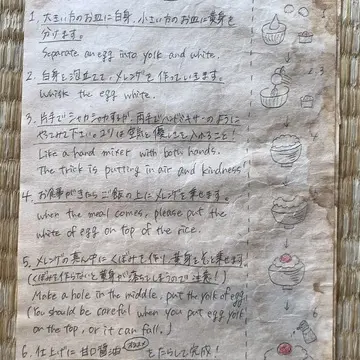 1. 大きい方のお皿に白身、小さい方のお皿に黄身を
分けます。
Separate an egg into yolk and white.
2. 白身を泡立てて、メレンゲを作っていきます。
Whisk the egg white.
3. 片手でシャカシャカするか、両手でハンドミキサーのように
やってみて下さい。コツは空気と優しさを入れること!
Like a hand mixer with both hands.
The trick is putting in air and kindness!
4. お食事がきたらご飯の上にメレンゲを乗せます。
When the meal comes, please put the
white of egg on top of the rice.
5. メレンゲの真ん中にくぼみを作り、黄身を乗せます。
(くぼみを作らないと黄身が落ちてしまうので注意!)
Make a hole in the middle, put the yolk of egg.
(You should be careful when you put egg yolk
on the top, or it can fall.)
6. 仕上げに甘口醤油 をたらして完成!